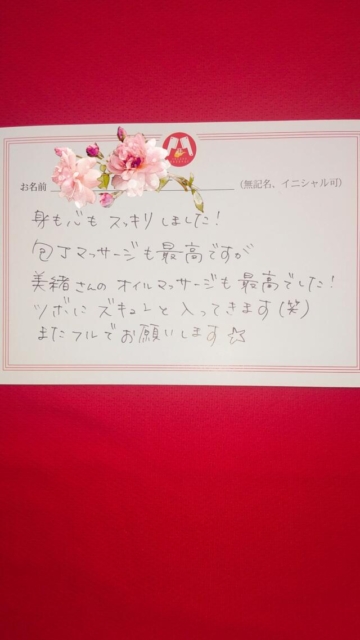 お名前 (無記名、イニシャル可)
身も心も スッキリしました!
包丁マッサージも最高ですが
美緒さんの オイルマッサージも最高でした!
ツボに ズキュンと入ってきます(笑)
またフルでお願いします☆